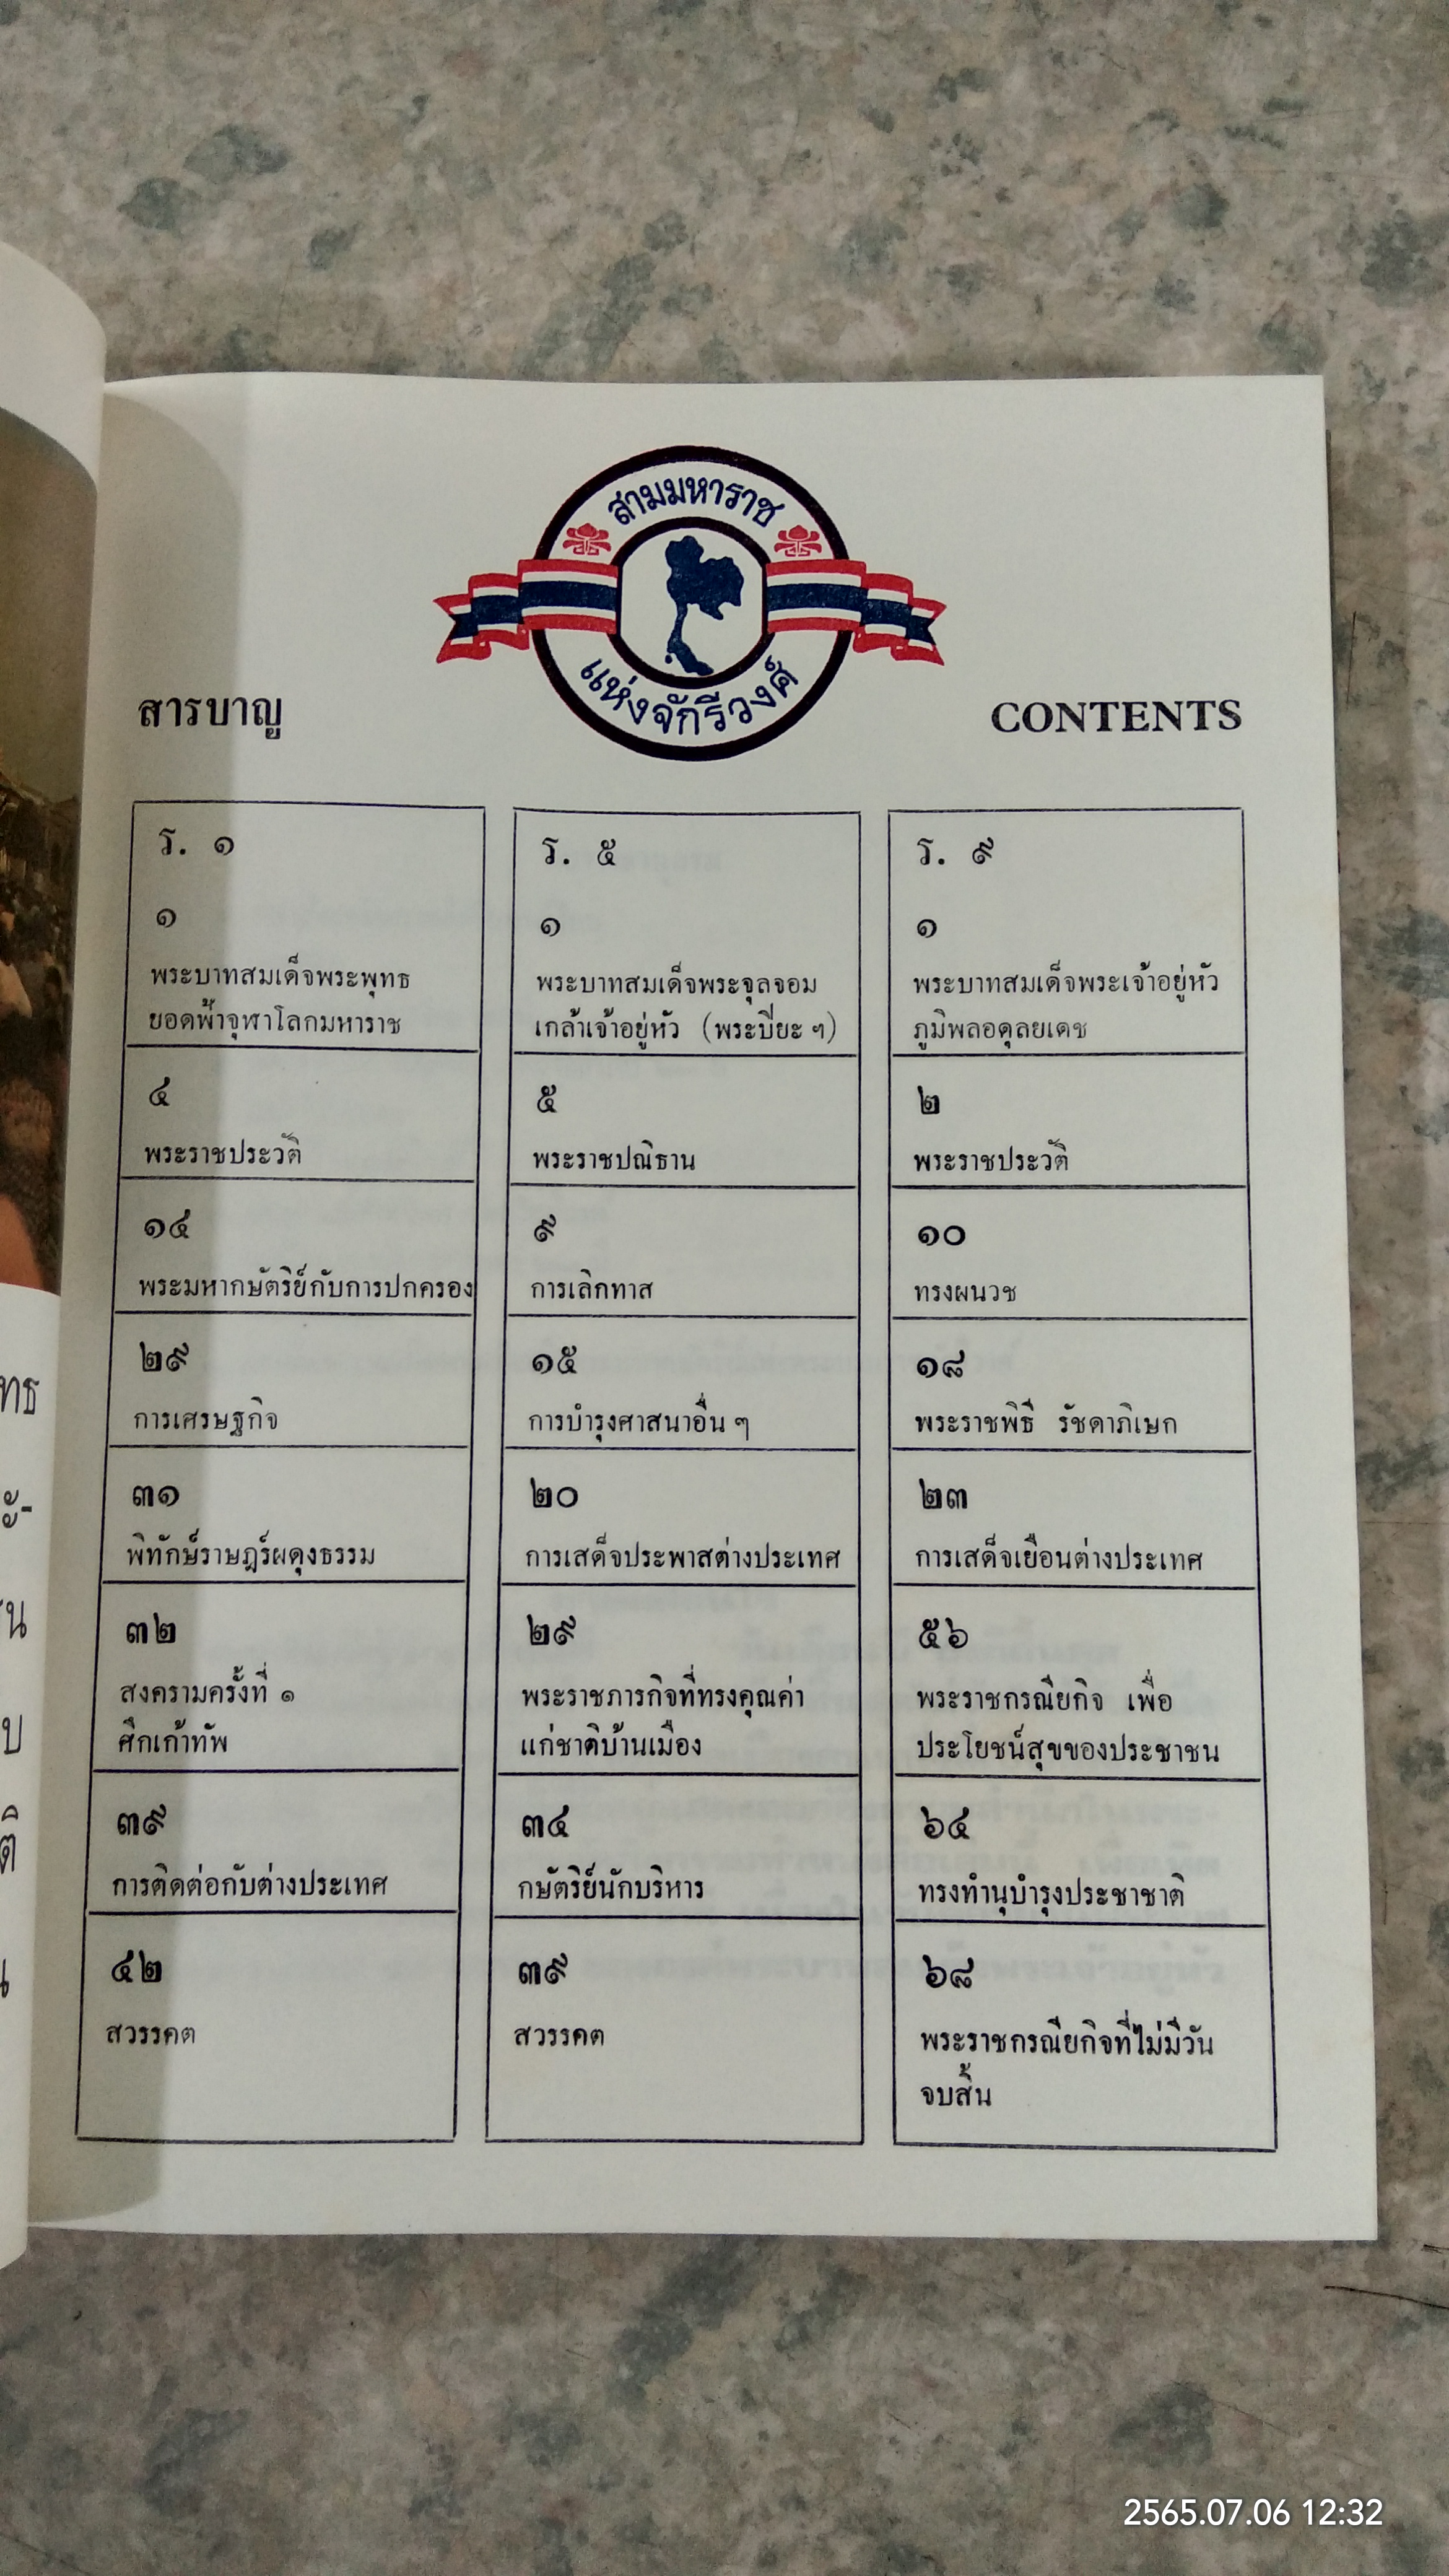 สามมหาราช
แห่งจักรีวงศ์
สารบาญ
CONTENTS
ร. ๑
๑
พระบาทสมเด็จพระพุทธ
ยอดฟ้าจุฬาโลกมหาราช
๔
พระราชประวัติ
๑๔
พระมหากษัตริย์กับการปกครอง
๒๙
การเศรษฐกิจ
๓๑
พิทักษ์ราษฎร์ผดุงธรรม
๓๒
สงครามครั้งที่ ๑
ศึกเก้าทัพ
๓๙
การติดต่อกับต่างประเทศ
๔๒
สวรรคต
ร. ๕
๑
พระบาทสมเด็จพระจุลจอม
เกล้าเจ้าอยู่หัว (พระปิยะ ๆ)
๕
พระราชปณิธาน
๙
การเลิกทาส
๑๕
การบำรุงศาสนาอื่น ๆ
๒๐
การเสด็จประพาสต่างประเทศ
๒๙
พระราชภารกิจที่ทรงคุณค่า
แก่ชาติบ้านเมือง
๓๔
กษัตริย์นักบริหาร
๓๙
สวรรคต
ร. ๙
๑
พระบาทสมเด็จพระเจ้าอยู่หัว
ภูมิพลอดุลยเดช
๒
พระราชประวัติ
๑๐
ทรงผนวช
๑๘
พระราชพิธี รัชดาภิเษก
๒๓
การเสด็จเยือนต่างประเทศ
๕๖
พระราชกรณียกิจ เพื่อ
ประโยชน์สุขของประชาชน
๖๔
ทรงทำนุบำรุงประชาชาติ
๖๘
พระราชกรณียกิจที่ไม่มีวัน
จบสิ้น
2565.07.06 12:32